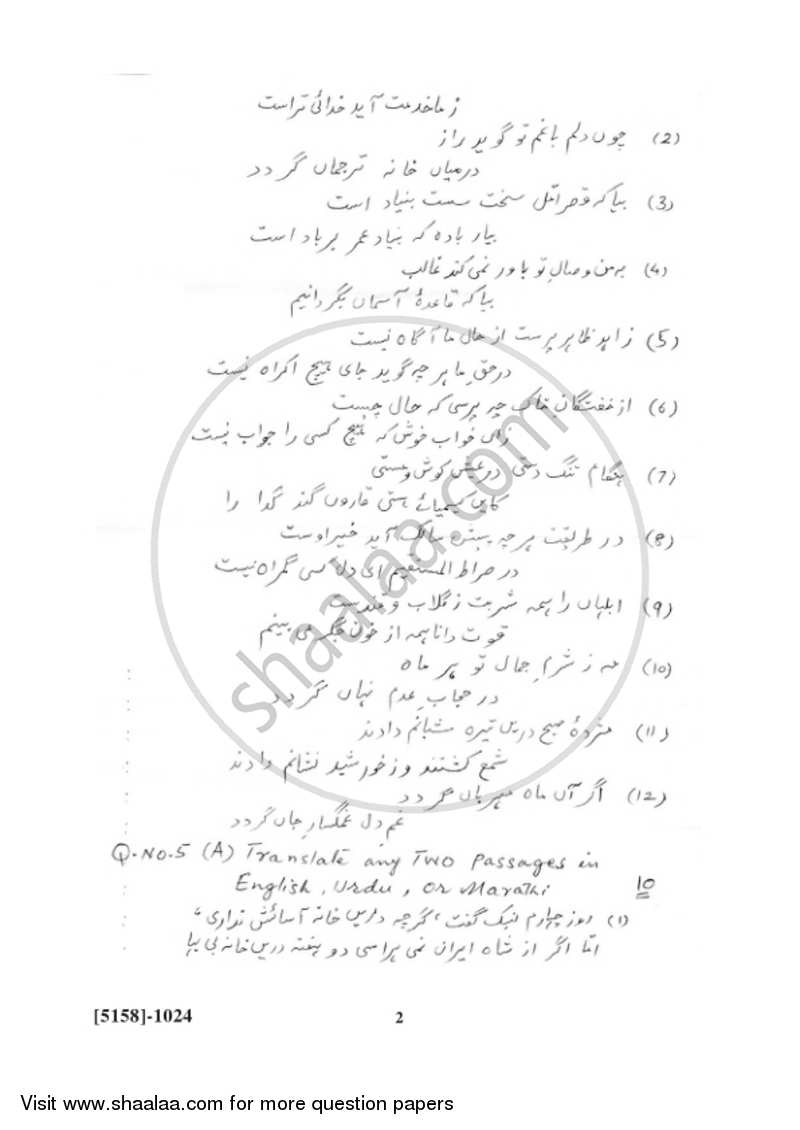 ز ما خدمت آید خدائی تراست
(2) چوں دلم با غم تو گوید راز
درمیاں خانہ ترجماں گردد
(3) بیا کہ قصر امل سخت سست بنیاد است
بیار بادہ کہ بنیاد عمر برباد است
(4) بہ من وصالِ تو باور نمی کند غالب
بیا کہ قاعدۂ آسماں بگردانیم
(5) زاہد ظاہر پرست از حال ما آگاہ نیست
درحقِ ما ہر چہ گوید جای ہیچ اکراہ نیست
(6) از خفتگانِ خاک چہ پرسی کہ حال چیست
زاں خواب خوش کہ ہیچ کسی را جواب نیست
(7) ہنگام تنگ دستی در عیش کوش و مستی
کایں کیمیائے ہستی قاروں کند گدا را
(8) در طریقت ہر چہ پیش سالک آید خیر اوست
در صراط المستقیم ای دل کسی گمراہ نیست
(9) ابلہاں را ہمہ شربت ز گلاب و قند است
قوت دانا ہمہ از خون جگر می بینم
(10) مہ ز شرمِ جمال تو ہر ماہ
در حجابِ عدم نہاں گردد
(11) مژدۂ صبح دریں تیرہ شبانم دادند
شمع کشتند و ز خورشید نشانم دادند
(12) اگر آں ماہ مہرباں گردد
غم دل غمگسار جاں گردد
Q.No.5 (A) Translate any Two Passages in
English, Urdu, or Marathi 10
(1) روز چہارم لنبک گفت، گرچہ دریں خانہ آسائش نداری "
امّا اگر از شاہ ایران نمی ہراسی دو ہفتہ دریں خانہ بی بہا
[5158]-1024 2
shaalaa.com
Visit www.shaalaa.com for more question papers